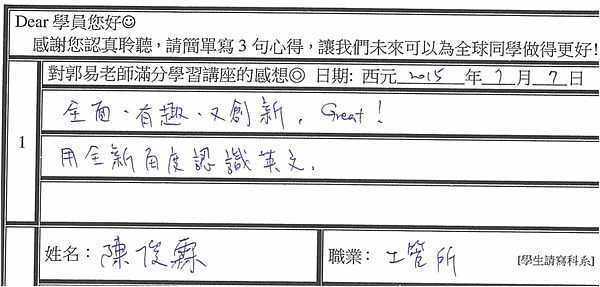 Dear 學員您好☺
感謝您認真聆聽，請簡單寫 3 句心得，讓我們未來可以為全球同學做得更好!
對郭易老師滿分學習講座的感想◎ 日期: 西元 2015 年 7 月 7 日
1
全面、有趣、又創新，Great!
用全新角度認識英文.
姓名： 陳俊霖 職業： 工管所 [學生請寫科系]